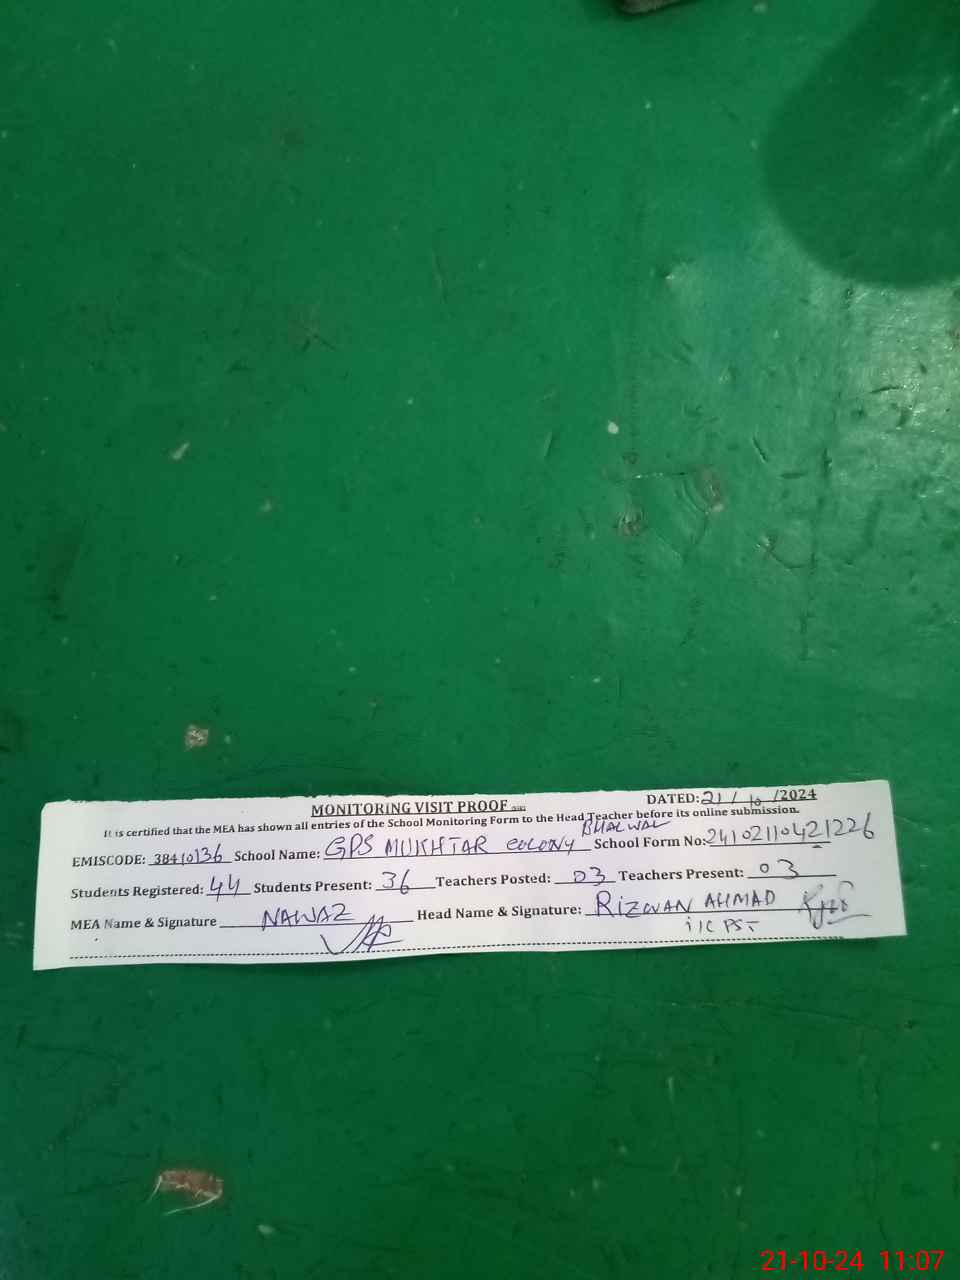 MONITORING VISIT PROOF
DATED: 21/10/2024
It is certified that the MEA has shown all entries of the School Monitoring Form to the Head Teacher before its online submission.
BHALWAL
EMISCODE: 38410136 School Name: GPS MUKHTAR COLONY School Form No: 24102110421226
Students Registered: 44 Students Present: 36 Teachers Posted: 03 Teachers Present: 03
MEA Name & Signature NAWAZ Head Name & Signature: RIZWAN AHMAD
i/c PST
21-10-24 11:07